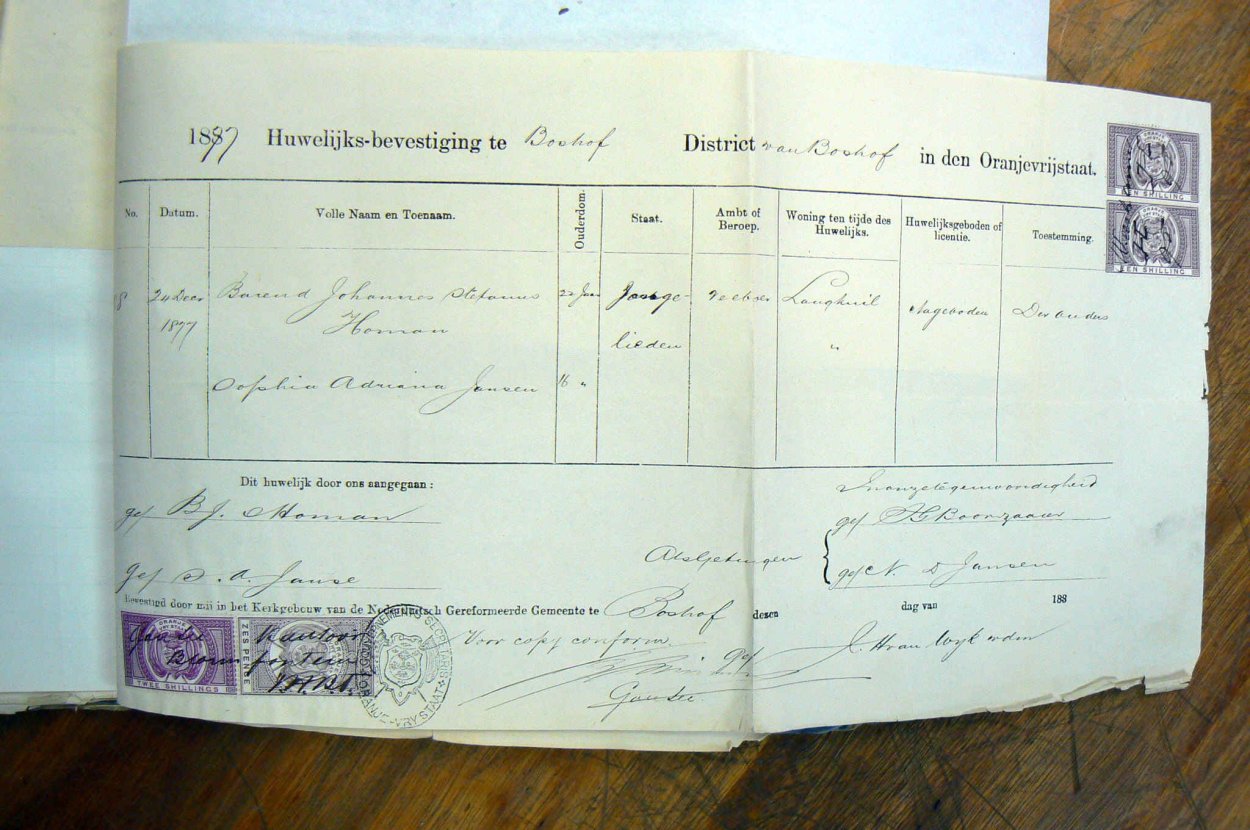 1877 Huwelijks-bevestiging te Boshof District van Boshof in den Oranjevrijstaat.
No. Datum. Volle Naam en Toenaam. Ouderdom. Staat. Ambt of Beroep. Woning ten tijde des Huwelijks. Huwelijksgeboden of licentie. Toestemming.
8 24 Decr Barend Johannes Stefanus 22 Jaar Jonge- Langkuil Nageboden Der ouders
1877 Homan lieden "
Sophia Adriana Jansen 16 "
Dit huwelijk door ons aangegaan:
In onze tegenwoordigheid
get B. J. Homan
get Boonzaaier
Als getuigen
get N. D Jansen
get S. A. Janse
Bevestigd door mij in het Kerkgebouw van de Nederduitsch Gereformeerde Gemeente te Boshof dezen dag van 188
Voor copy conform
get J. H van Wyk
ORANJE
VRY STAAT
TWEE SHILLINGS
ZES PENCE
Kantoor
Bloemfontein
GOUVERNEMENTS
ORANJE-VRYSTAAT
ORANJE
VRY STAAT
EEN SHILLING
EEN SHILLING